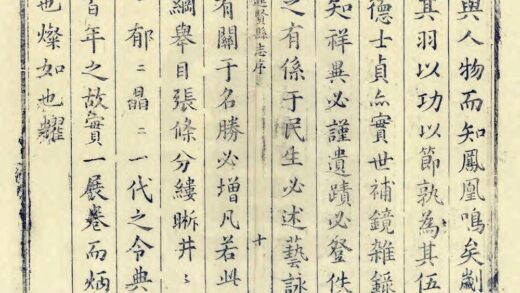 與人物而知鳳凰鳴矣劌
其羽以功以節孰為其伍
德士貞亦實世補鏡雜錄
知祥異必謹遺蹟必登佚
之有係于民生必述藝詠
進賢縣志序 十
有關于名勝必增凡若此
綱舉目張條分縷晰井〻
郁〻晶〻一代之令典
百年之故實一展卷而炳
也燦如也耀